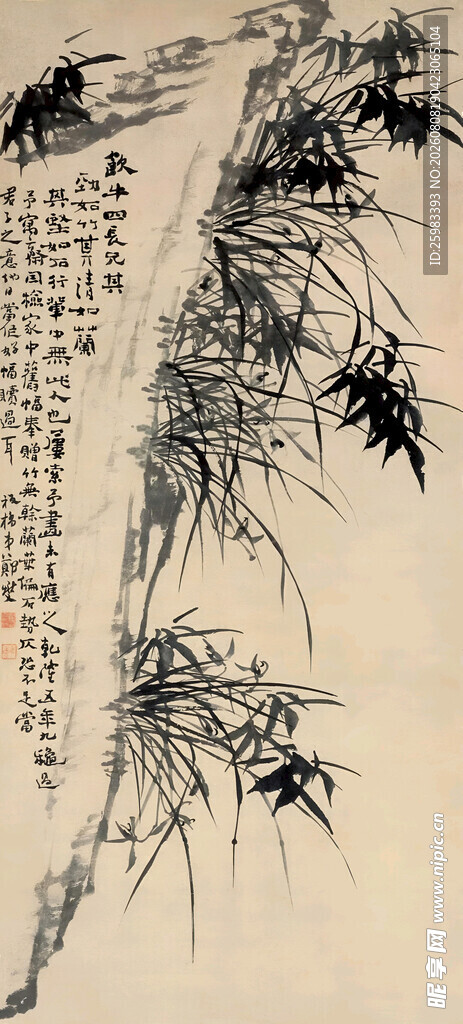 飲牛四長兄其
勁如竹其清如蘭
其堅如石行輩中無此人也屢索予畫未有應之乾隆五年九龝過
予寓齋因檢家中舊幅奉贈竹無榦蘭葉偏石勢仄恐不足當
君子之意他日當作好幅贖過耳 板橋弟鄭燮
ID:25983393 NO:20260808190423065104
昵享网 www.nipic.cn